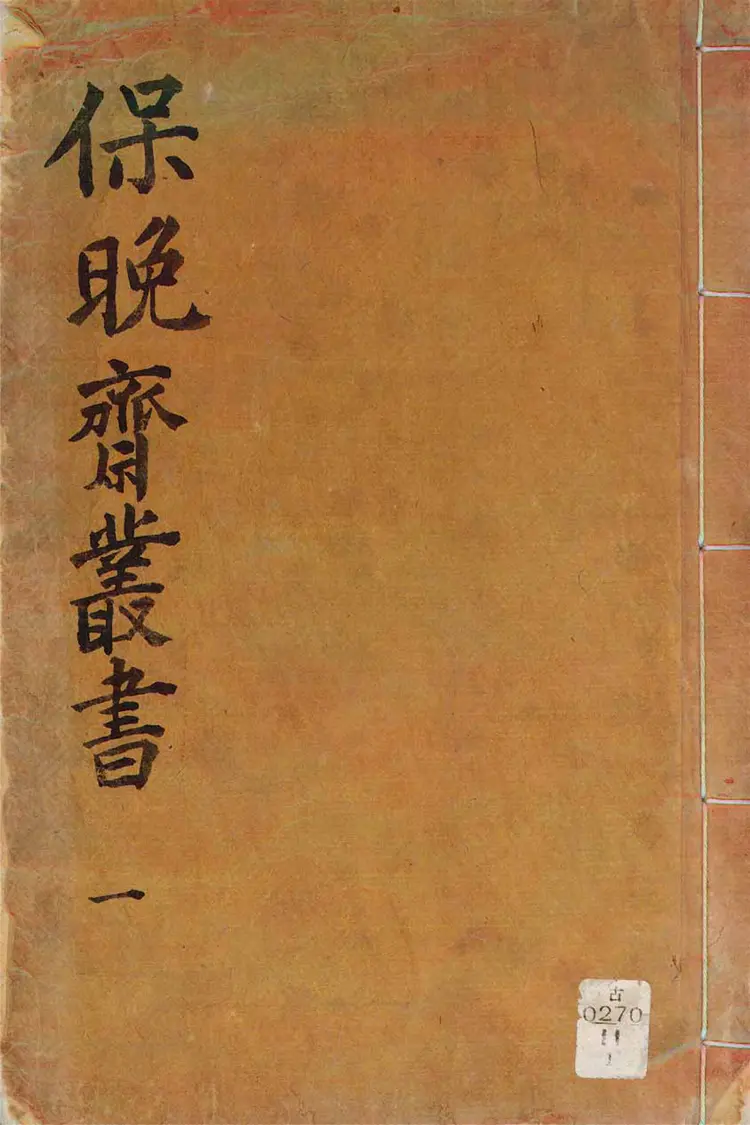 保晚齋叢書 一
古
0270
11
1